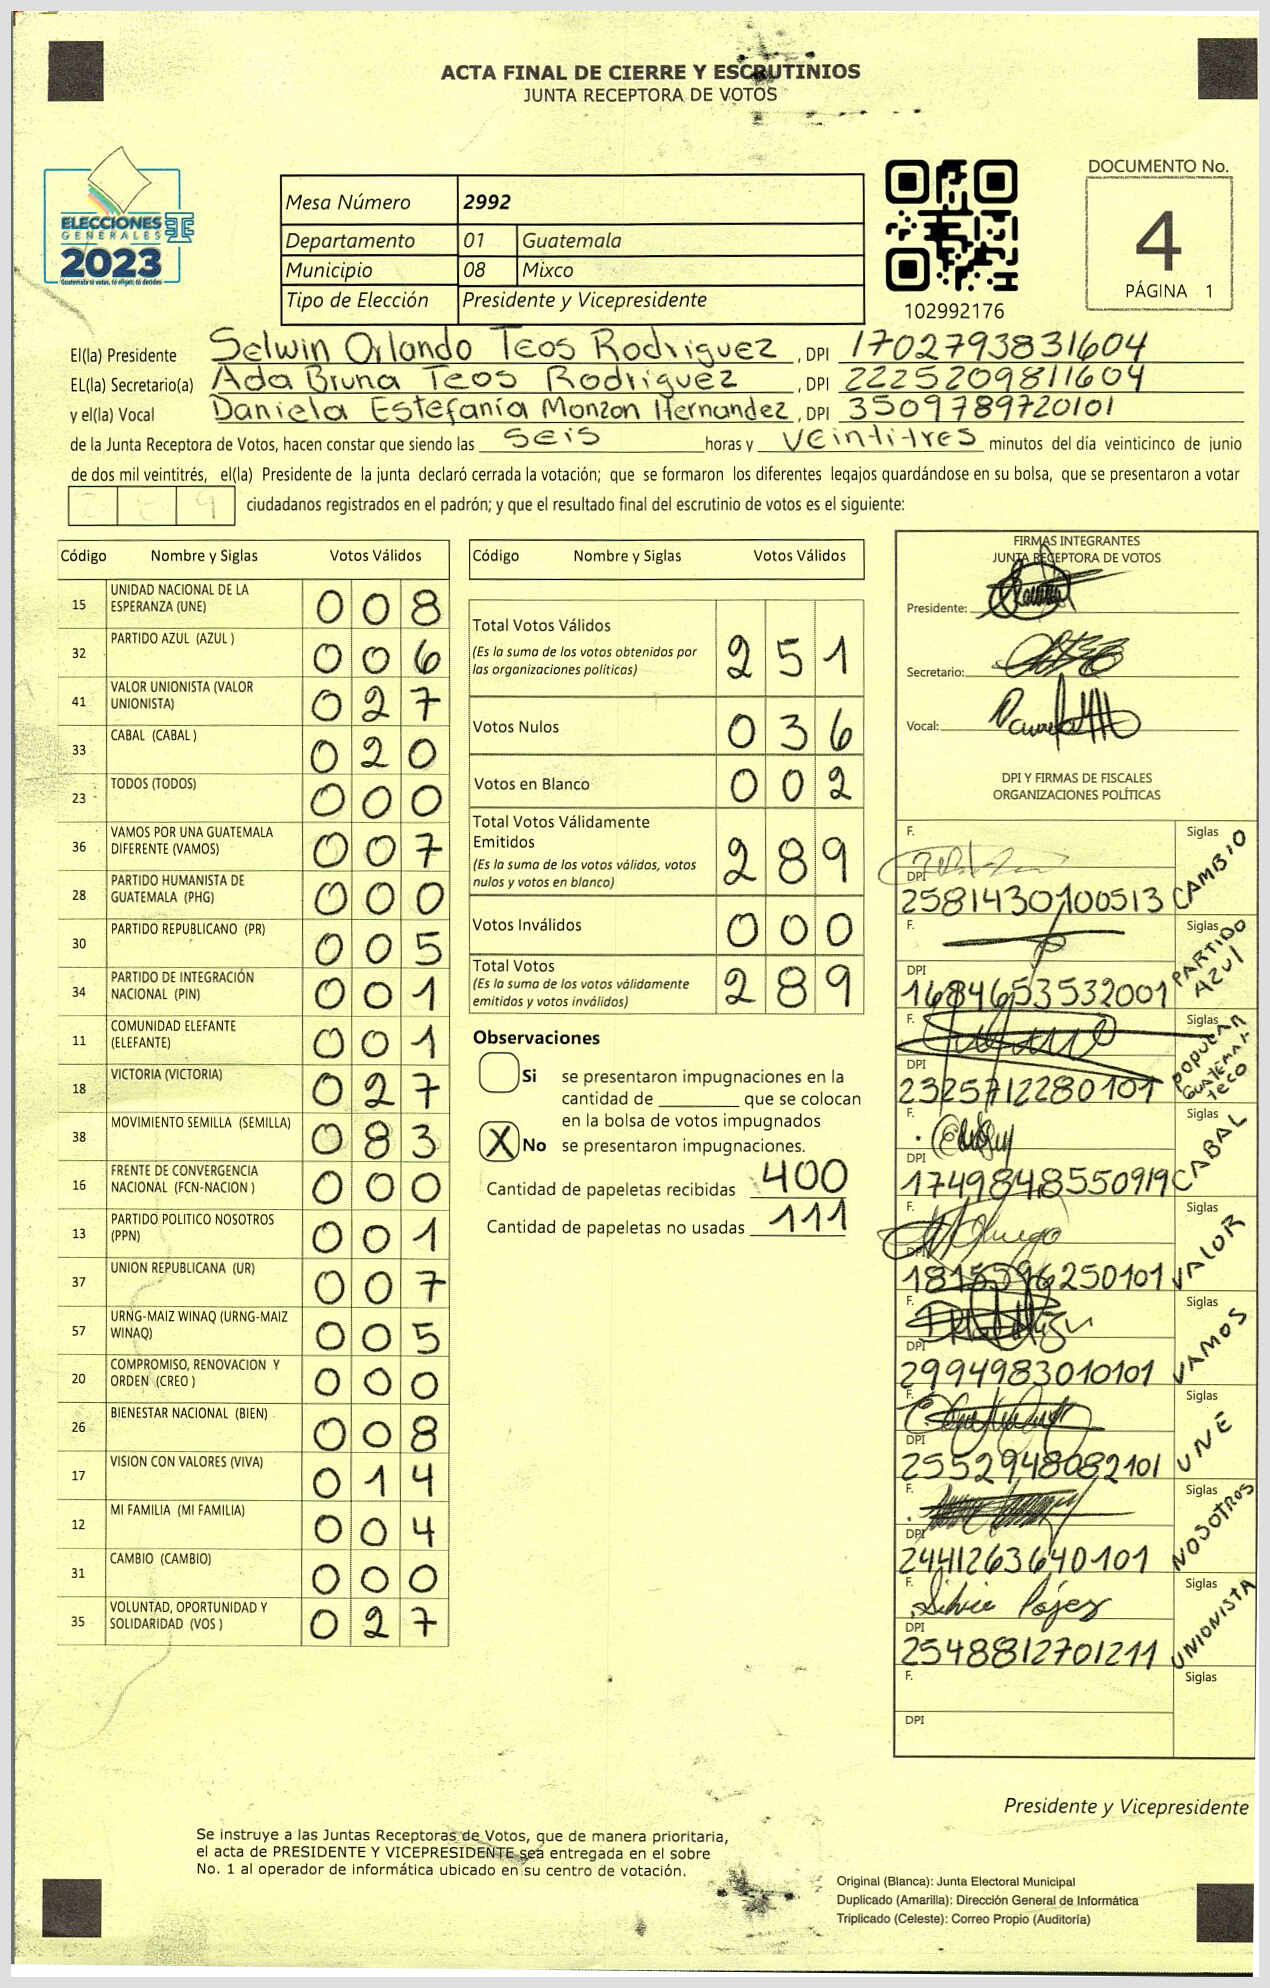 ACTA FINAL DE CIERRE Y ESCRUTINIOS
JUNTA RECEPTORA DE VOTOS
ELECCIONES
GENERALES
2023
Guatemala tú votas, tú eliges, tú decides
Mesa Número 2992
Departamento 01 Guatemala
Municipio 08 Mixco
Tipo de Elección Presidente y Vicepresidente
102992176
DOCUMENTO No.
4
PÁGINA 1
El(la) Presidente Selwin Orlando Teos Rodriguez , DPI 1702793831604
EL(la) Secretario(a) Ada Bruna Teos Rodriguez , DPI 2225209811604
y el(la) Vocal Daniela Estefanía Monzon Hernandez , DPI 3509789720101
de la Junta Receptora de Votos, hacen constar que siendo las seis horas y veintitres minutos del día veinticinco de junio
de dos mil veintitrés, el(la) Presidente de la junta declaró cerrada la votación; que se formaron los diferentes legajos guardándose en su bolsa, que se presentaron a votar
ciudadanos registrados en el padrón; y que el resultado final del escrutinio de votos es el siguiente:
Código Nombre y Siglas Votos Válidos
15 UNIDAD NACIONAL DE LA ESPERANZA (UNE) 008
32 PARTIDO AZUL (AZUL ) 006
41 VALOR UNIONISTA (VALOR UNIONISTA) 027
33 CABAL (CABAL ) 020
23 TODOS (TODOS) 000
36 VAMOS POR UNA GUATEMALA DIFERENTE (VAMOS) 007
28 PARTIDO HUMANISTA DE GUATEMALA (PHG) 000
30 PARTIDO REPUBLICANO (PR) 005
34 PARTIDO DE INTEGRACIÓN NACIONAL (PIN) 001
11 COMUNIDAD ELEFANTE (ELEFANTE) 001
18 VICTORIA (VICTORIA) 027
38 MOVIMIENTO SEMILLA (SEMILLA) 083
16 FRENTE DE CONVERGENCIA NACIONAL (FCN-NACION ) 000
13 PARTIDO POLITICO NOSOTROS (PPN) 001
37 UNION REPUBLICANA (UR) 007
57 URNG-MAIZ WINAQ (URNG-MAIZ WINAQ) 005
20 COMPROMISO, RENOVACION Y ORDEN (CREO ) 000
26 BIENESTAR NACIONAL (BIEN) 008
17 VISION CON VALORES (VIVA) 014
12 MI FAMILIA (MI FAMILIA) 004
31 CAMBIO (CAMBIO) 000
35 VOLUNTAD, OPORTUNIDAD Y SOLIDARIDAD (VOS ) 027
Código Nombre y Siglas Votos Válidos
Total Votos Válidos 251
(Es la suma de los votos obtenidos por
las organizaciones políticas)
Votos Nulos 036
Votos en Blanco 002
Total Votos Válidamente
Emitidos 289
(Es la suma de los votos válidos, votos
nulos y votos en blanco)
Votos Inválidos 000
Total Votos 289
(Es la suma de los votos válidamente
emitidos y votos inválidos)
Observaciones
Si se presentaron impugnaciones en la
cantidad de ________ que se colocan
en la bolsa de votos impugnados
X No se presentaron impugnaciones.
Cantidad de papeletas recibidas 400
Cantidad de papeletas no usadas 111
FIRMAS INTEGRANTES
JUNTA RECEPTORA DE VOTOS
Presidente:
Secretario:
Vocal:
DPI Y FIRMAS DE FISCALES
ORGANIZACIONES POLÍTICAS
F. Siglas
DPI 2581430100513 CAMBIO
F. Siglas
DPI 1684653532001 PARTIDO AZUL
F. Siglas
DPI 2325712280101 POPULAR GUATEMALTECO
F. Siglas
DPI 1749848550919 CABAL
F. Siglas
DPI 1815596250101 VALOR
F. Siglas
DPI 2994983010101 VAMOS
F. Siglas
DPI 2552948082101 UNE
F. Siglas
DPI 2441263640101 NOSOTROS
F. Silvia Pájez Siglas
DPI 2548812701211 UNIONISTA
F. Siglas
DPI
Presidente y Vicepresidente
Se instruye a las Juntas Receptoras de Votos, que de manera prioritaria,
el acta de PRESIDENTE Y VICEPRESIDENTE sea entregada en el sobre
No. 1 al operador de informática ubicado en su centro de votación.
Original (Blanca): Junta Electoral Municipal
Duplicado (Amarilla): Dirección General de Informática
Triplicado (Celeste): Correo Propio (Auditoría)